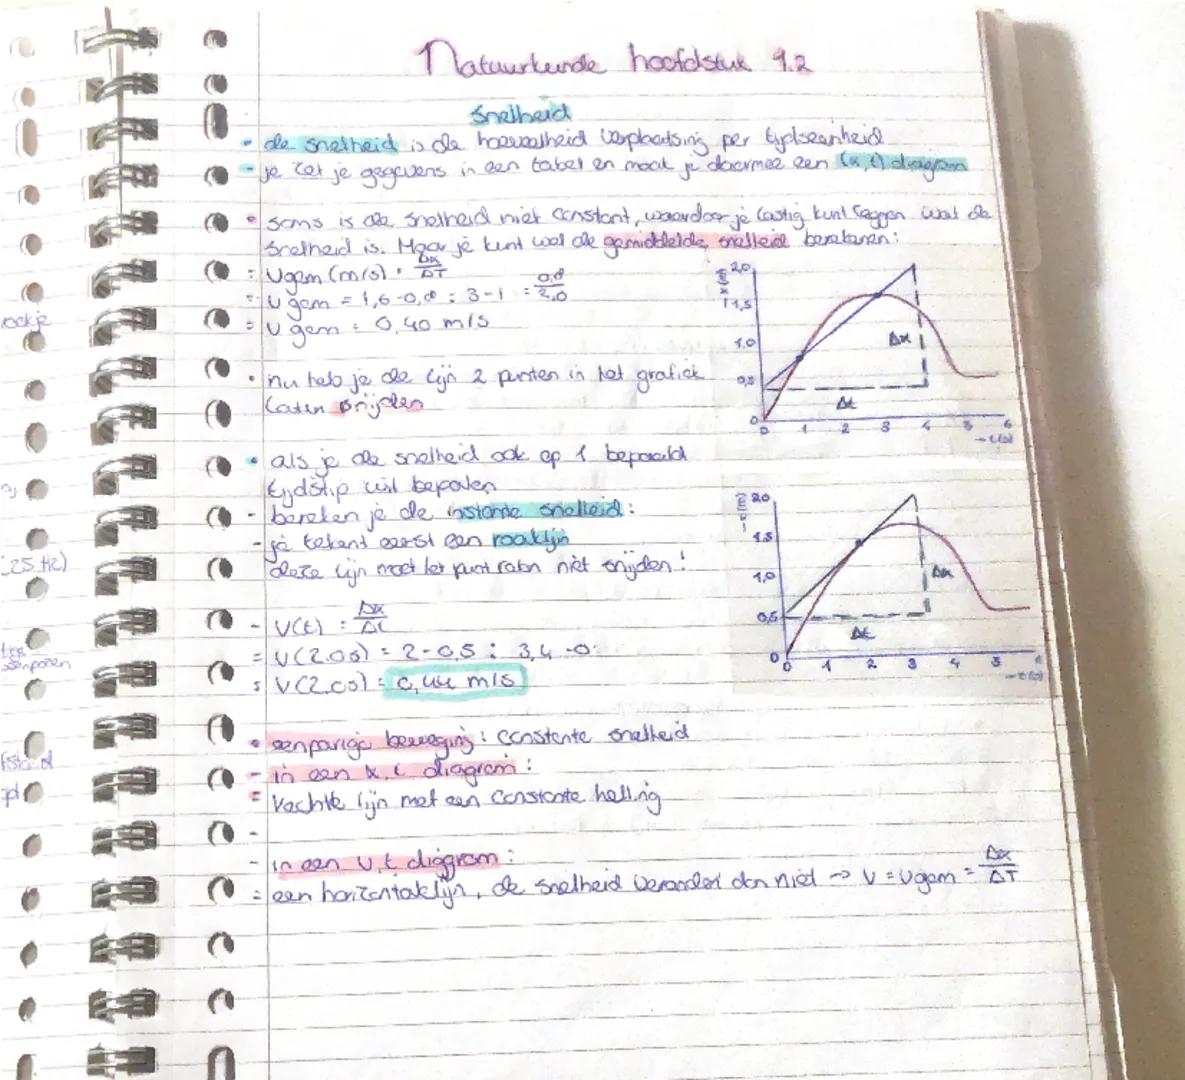 Natuurkunde hoofdstuk 9.2
Snelheid
• de snelheid is de hoeveelheid verplaatsing per tijdseenheid
- je zet je gegevens in een tabel en maak je daarmee een (x,t) diagram
• soms is de snelheid niet constant, waardoor je lastig kunt zeggen wat de
snelheid is. Maar je kunt wel de gemiddelde snelheid berekenen:
= Vgem (m/s) = Δx/ΔT
= Vgem = 1,6-0,8 : 3-1 = 0,8/2,0
= Vgem = 0,40 m/s
• nu heb je de lijn 2 punten in het grafiek
laten snijden
• als je de snelheid ook op 1 bepaald
tijdstip wil bepalen
- bereken je de instante snelheid:
- je tekent eerst een raaklijn
deze lijn moet het punt raken niet snijden!
- V(t) = Δx/Δt
= V(2.0s) = 2-0,5 : 3,4-0
= V(2.0s) = 0,44 m/s
• eenparige beweging: constante snelheid
- in een x,t diagram:
= rechte lijn met een constante helling
-
- in een v,t diagram:
= een horizontale lijn, de snelheid verandert dan niet → V = Vgem = Δx/ΔT
2,0
1,5
1,0
0,5
0
Δx
Δt
0 1 2 3 4 5 6
→t(s)
2,0
1,5
1,0
0,5
0
Δx
Δt
0 1 2 3 4 5 6
→t(s)
rockje
25 Hz)